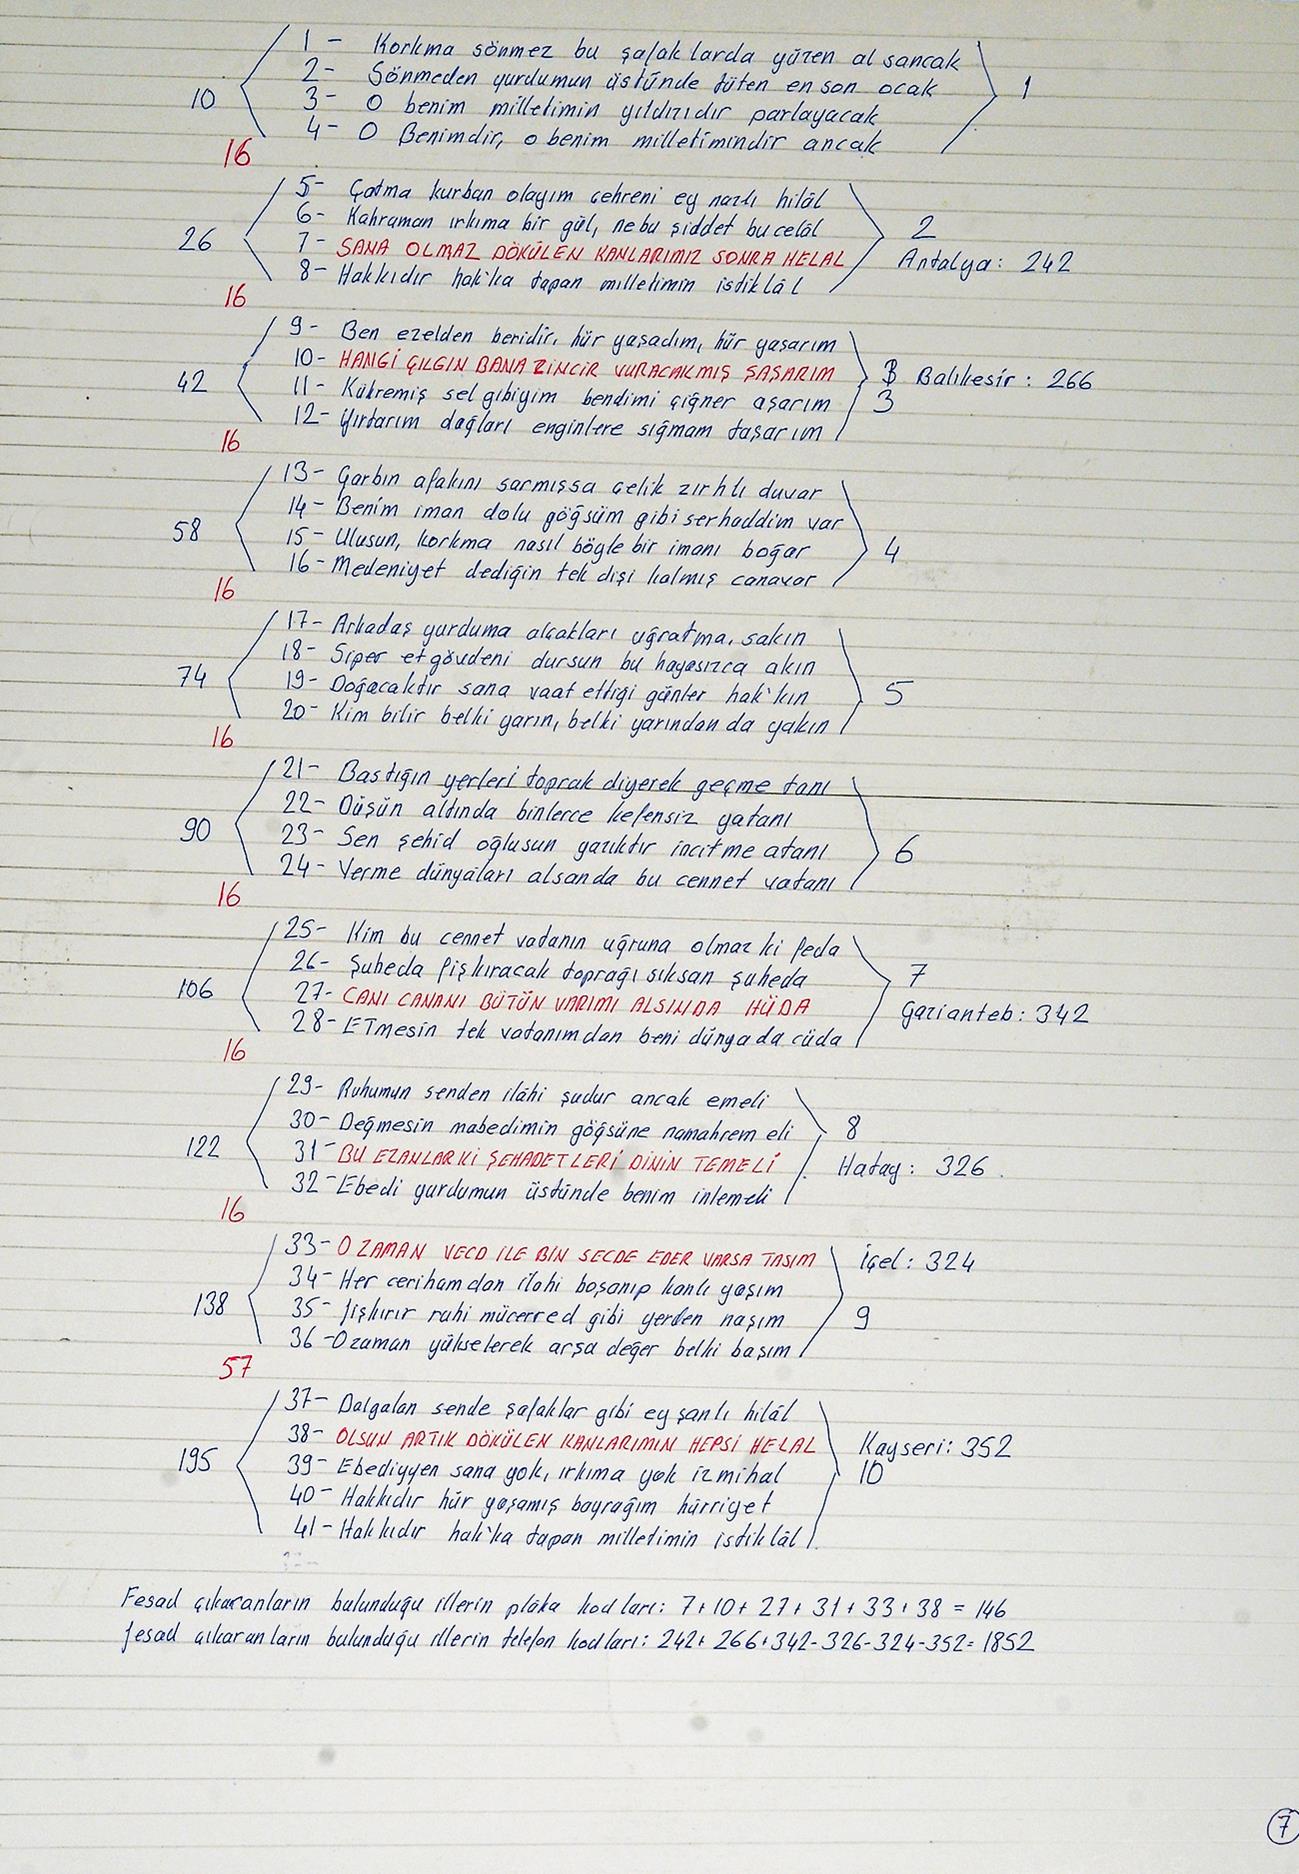 1 - Korkma sönmez bu şafaklarda yüzen al sancak
2- Sönmeden yurdumun üstünde tüten en son ocak
10 3- O benim milletimin yıldızıdır parlayacak 1
4- O Benimdir, o benim milletimindir ancak
16
5- Çatma kurban olayım çehreni ey nazlı hilâl
6- Kahraman ırkıma bir gül, ne bu şiddet bu celâl 2
26 7- SANA OLMAZ DÖKÜLEN KANLARIMIZ SONRA HELAL Antalya: 242
8- Hakkıdır hak'ka tapan milletimin istiklâl
16
9- Ben ezelden beridir, hür yaşadım, hür yaşarım
10- HANGİ ÇILGIN BANA ZİNCİR VURACAKMIŞ ŞAŞARIM Balıkesir: 266
42 11- Kükremiş sel gibiyim bendimi çiğner aşarım 3
12- Yırtarım dağları enginlere sığmam taşarım
16
13- Garbın afakını sarmışsa çelik zırhlı duvar
14- Benim iman dolu göğsüm gibi serhaddim var
58 15- Ulusun, korkma nasıl böyle bir imanı boğar 4
16- Medeniyet dediğin tek dişi kalmış canavar
16
17- Arkadaş yurduma alçakları uğratma, sakın
18- Siper et gövdeni dursun bu hayasızca akın
74 19- Doğacaktır sana vaat ettiği günler hak'kın 5
20- Kim bilir belki yarın, belki yarından da yakın
16
21- Bastığın yerleri toprak diyerek geçme tanı
22- Düşün altında binlerce kefensiz yatanı
90 23- Sen şehid oğlusun yazıktır incitme atanı 6
24- Verme dünyaları alsanda bu cennet vatanı
16
25- Kim bu cennet vatanın uğruna olmaz ki feda
26- Şuheda fişkıracak toprağı sıksan şuheda 7
106 27- CANI CANANI BÜTÜN VARIMI ALSINDA HÜDA Gazianteb: 342
28- ETmesin tek vatanımdan beni dünyada cüda
16
29- Ruhumun senden ilâhi şudur ancak emeli
30- Değmesin mabedimin göğsüne namahrem eli 8
122 31- BU EZANLAR Kİ ŞEHADETLERİ DİNİN TEMELİ Hatay: 326
32- Ebedi yurdumun üstünde benim inlemeli
16
33- O ZAMAN VECD İLE BİN SECDE EDER VARSA TAŞIM İçel: 324
34- Her cerihamdan ilahi boşanıp kanlı yaşım
138 35- fişkırır ruhi mücerred gibi yerden naşım 9
36- O zaman yükselerek arşa değer belki başım
57
37- Dalgalan sende şafaklar gibi ey şanlı hilâl
38- OLSUN ARTIK DÖKÜLEN KANLARIMIN HEPSİ HELAL Kayseri: 352
195 39- Ebediyyen sana yok, ırkıma yok izmihal 10
40- Hakkıdır hür yaşamış bayrağım hürriyet
41- Hakkıdır hak'ka tapan milletimin istiklâl
Fesad çıkaranların bulunduğu illerin plâka kodları: 7+10+27+31+33+38 = 146
fesad çıkaranların bulunduğu illerin telefon kodları: 242+266+342-326-324-352= 1852
7